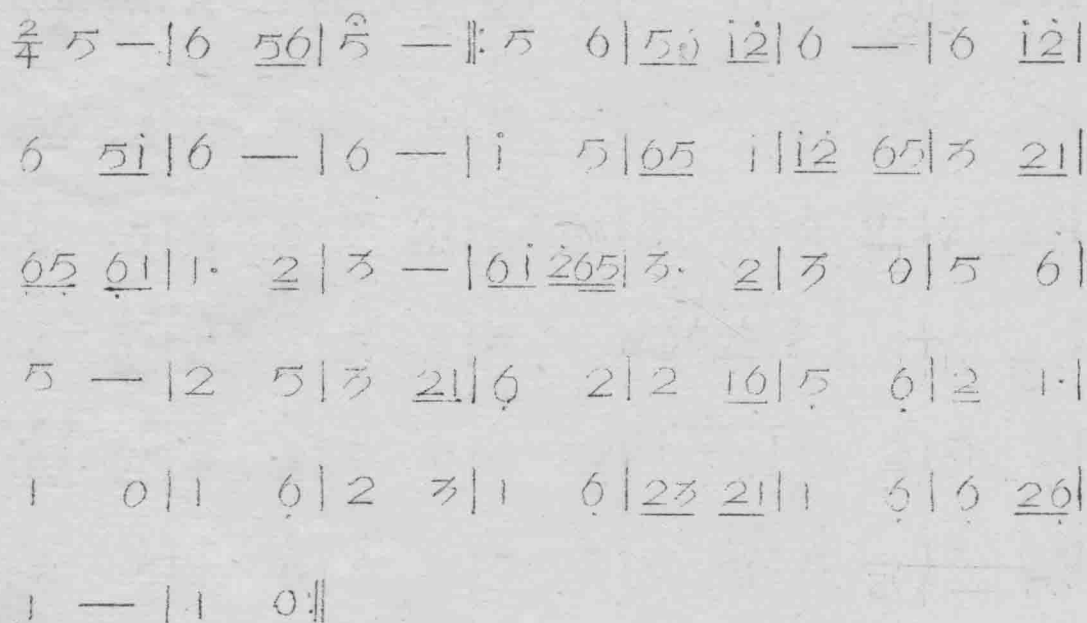 2/4 5 — | 6 5̲6̲ | 5̂ — ‖: 5 6 | 5̲6̲ i̲̇2̲̇ | 6 — | 6 i̲̇2̲̇ |
6 5̲i̲̇ | 6 — | 6 — | i̇ 5 | 6̲5̲ i | i̲̇2̲̇ 6̲5̲ | 3 2̲1̲ |
6̲̣5̲̣ 6̲̣1̲ | 1· 2̲ | 3 — | 6̲i̲̇ 2̲̇6̳5̳ | 3· 2̲ | 3 0 | 5 6 |
5 — | 2 5 | 3 2̲1̲ | 6̣ 2 | 2 1̲6̲̣ | 5̣ 6̣ | 2̲ 1· |
1 0 | 1 6̣ | 2 3 | 1 6̣ | 2̲3̲ 2̲1̲ | 1 6̣ | 6̣ 2̲6̲̣ |
1 — | 1 0 :‖